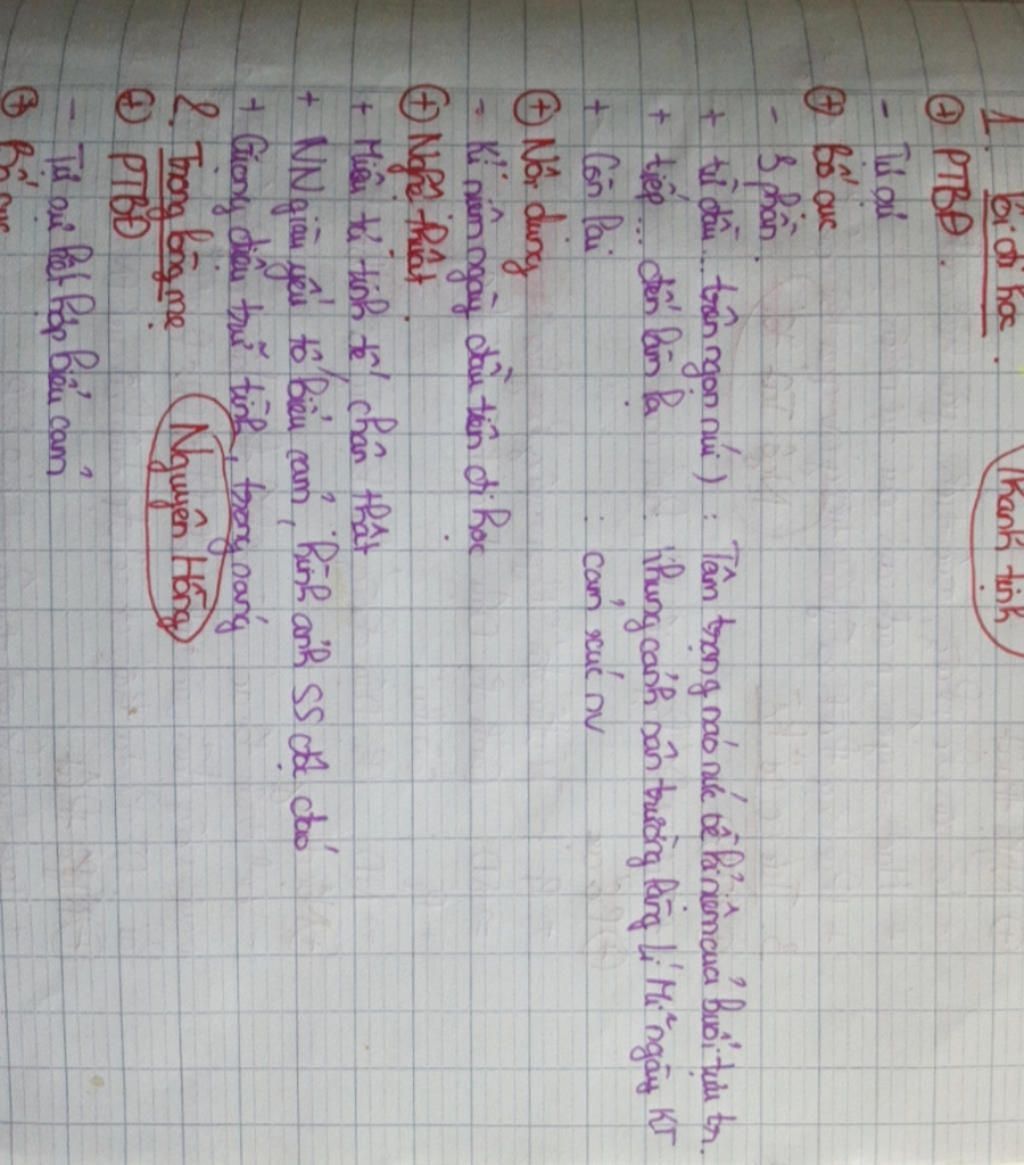 1. Tôi đi học. Thanh tịnh
⊕ PTBĐ.
- Tự sự
⊕ Bố cục
- 3 phần.
+ từ đầu... trên ngọn núi) : Tâm trạng náo nức về kỉ niệm của buổi tựu tr.
+ tiếp... đến làm lạ : Khung cảnh sân trường làng Lí Mĩ ngày KT
+ Còn lại : cảm xúc nv
⊕ Nội dung
- Kỉ niệm ngày đầu tiên đi học
⊕ Nghệ thuật.
+ Miêu tả tinh tế chân thật
+ NN giàu yếu tố biểu cảm, hình ảnh SS độc đáo
+ Giọng điệu trữ tình, trong sáng
2. Trong lòng mẹ Nguyên Hồng
⊕ PTBĐ
- Tự sự kết hợp biểu cảm
⊕ Bố cục